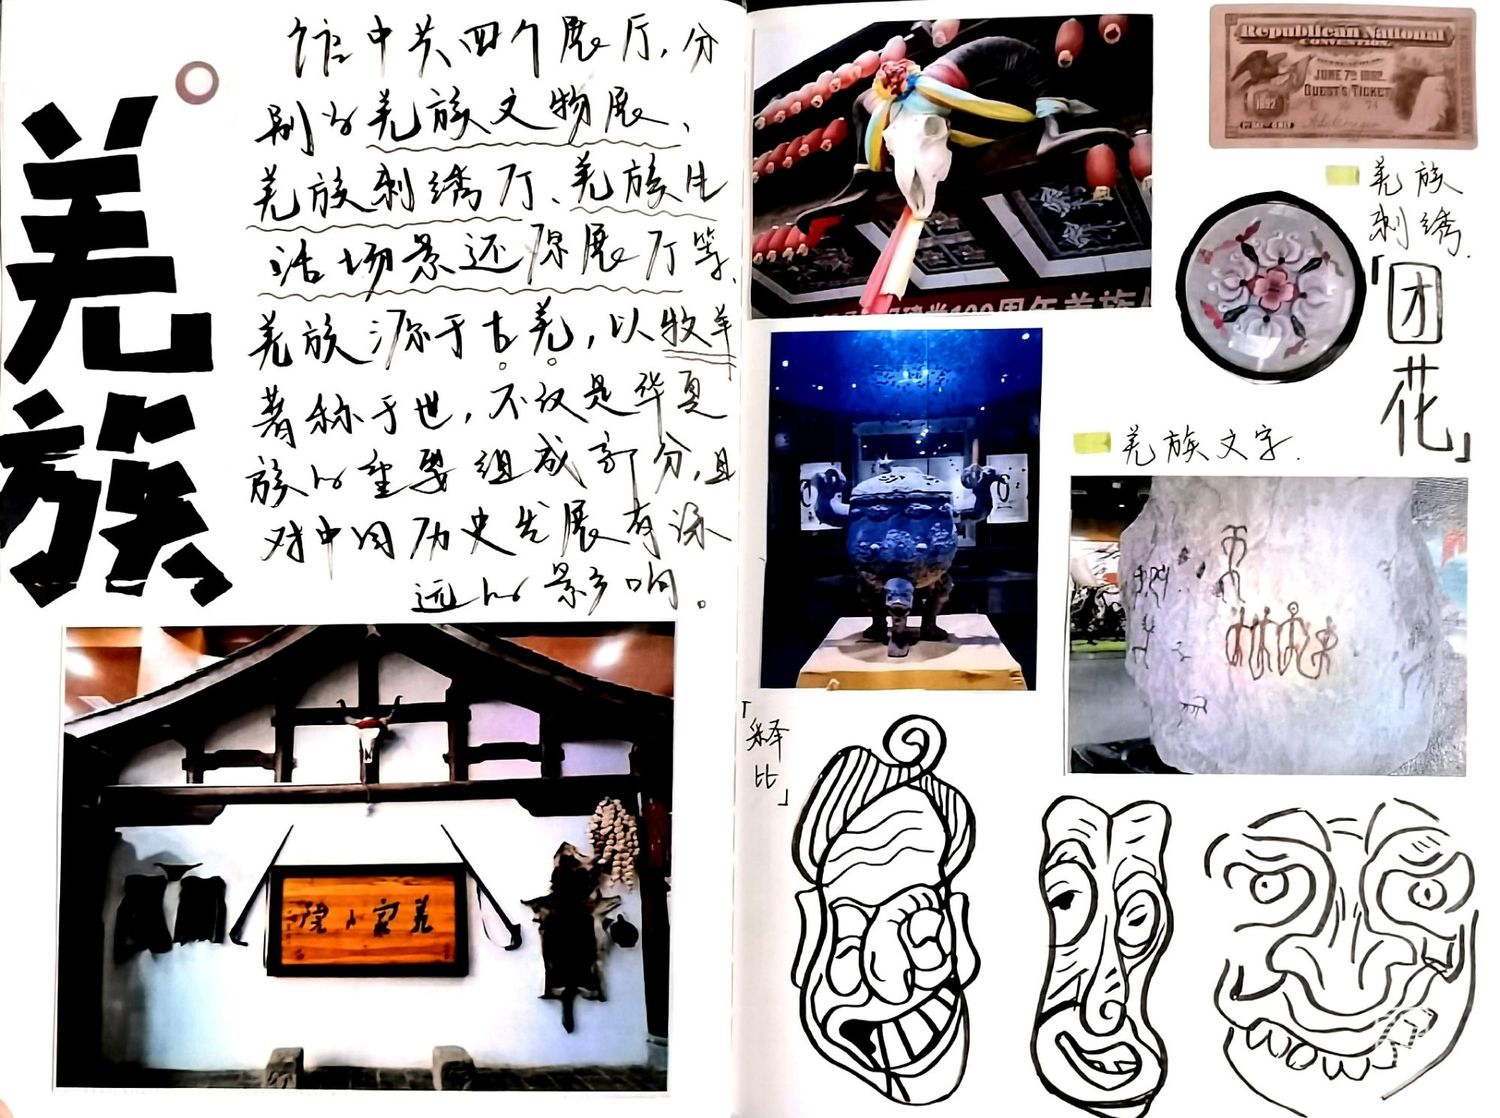 羌族
馆中共四个展厅,分
别为羌族文物展、
羌族刺绣厅、羌族生
活场景还原展厅等、
羌族源于古羌,以牧羊
著称于世,不仅是华夏
族的重要组成部分,且
对中国历史发展有深
远的影响。
羌家小院
Republican National
CONVENTION.
JUNE 7th 1892.
GUEST'S TICKET
1892
羌族
刺绣.
「团花」
羌族文字.
「释比」
100周年羌族